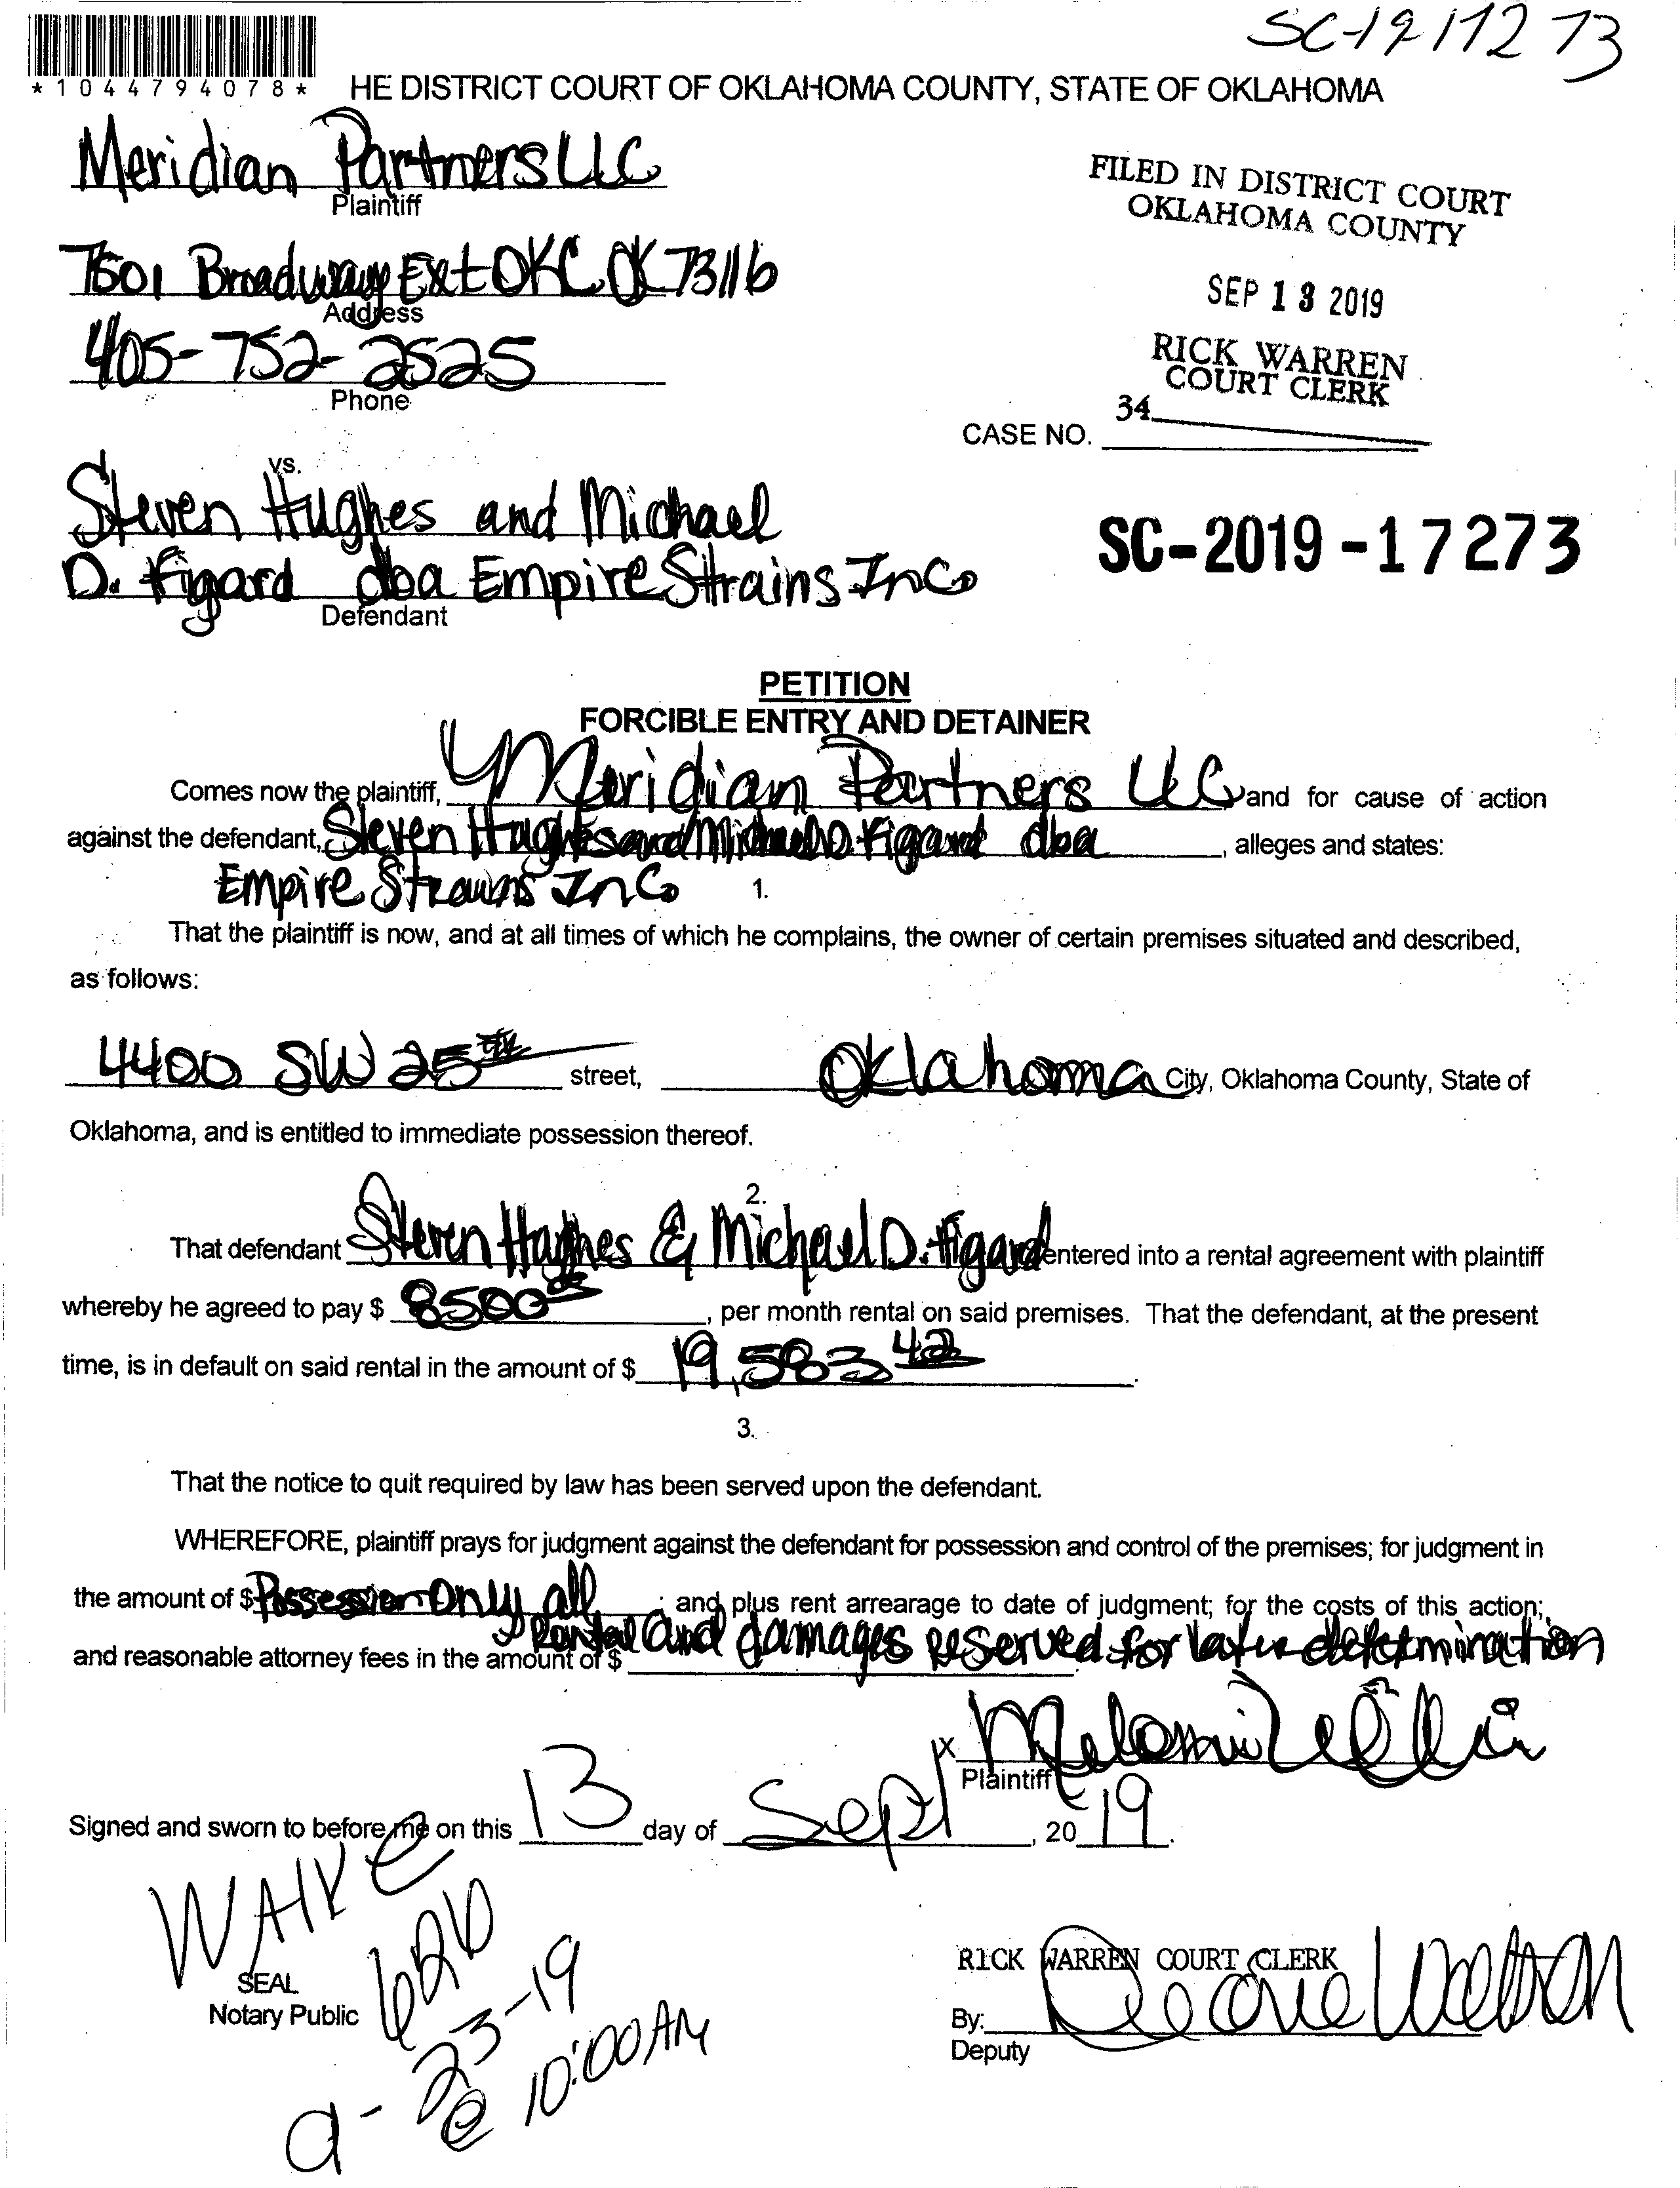 SC-19 17273
*1044794078*
HE DISTRICT COURT OF OKLAHOMA COUNTY, STATE OF OKLAHOMA
Meridian Partners LLC
Plaintiff
FILED IN DISTRICT COURT
OKLAHOMA COUNTY
7501 Broadway Ext OKC OK 73116
Address
SEP 13 2019
405-752-2525
Phone
RICK WARREN
COURT CLERK
34
CASE NO.
vs.
Steven Hughes and Michael
D. Figard dba Empire Strains Inc.
Defendant
SC-2019-17273
PETITION
FORCIBLE ENTRY AND DETAINER
Comes now the plaintiff, Meridian Partners LLC and for cause of action
against the defendant, Steven Hughes and Michael D Figard dba , alleges and states:
Empire Strains Inc.
1.
That the plaintiff is now, and at all times of which he complains, the owner of certain premises situated and described,
as follows:
4400 SW 25th street, Oklahoma City, Oklahoma County, State of
Oklahoma, and is entitled to immediate possession thereof.
2.
That defendant Steven Hughes & Michael D. Figard entered into a rental agreement with plaintiff
whereby he agreed to pay $ 8500 00 , per month rental on said premises. That the defendant, at the present
time, is in default on said rental in the amount of $ 19,583 42 .
3.
That the notice to quit required by law has been served upon the defendant.
WHEREFORE, plaintiff prays for judgment against the defendant for possession and control of the premises; for judgment in
the amount of $ Possession Only all ; and plus rent arrearage to date of judgment; for the costs of this action;
Rental and damages reserved for later determination
and reasonable attorney fees in the amount of $
x
Plaintiff
Signed and sworn to before me on this 13 day of Sept , 20 19 .
WAIVE
SEAL
Notary Public
626
9-23-19
@ 10:00 AM
RICK WARREN COURT CLERK
By:
Deputy